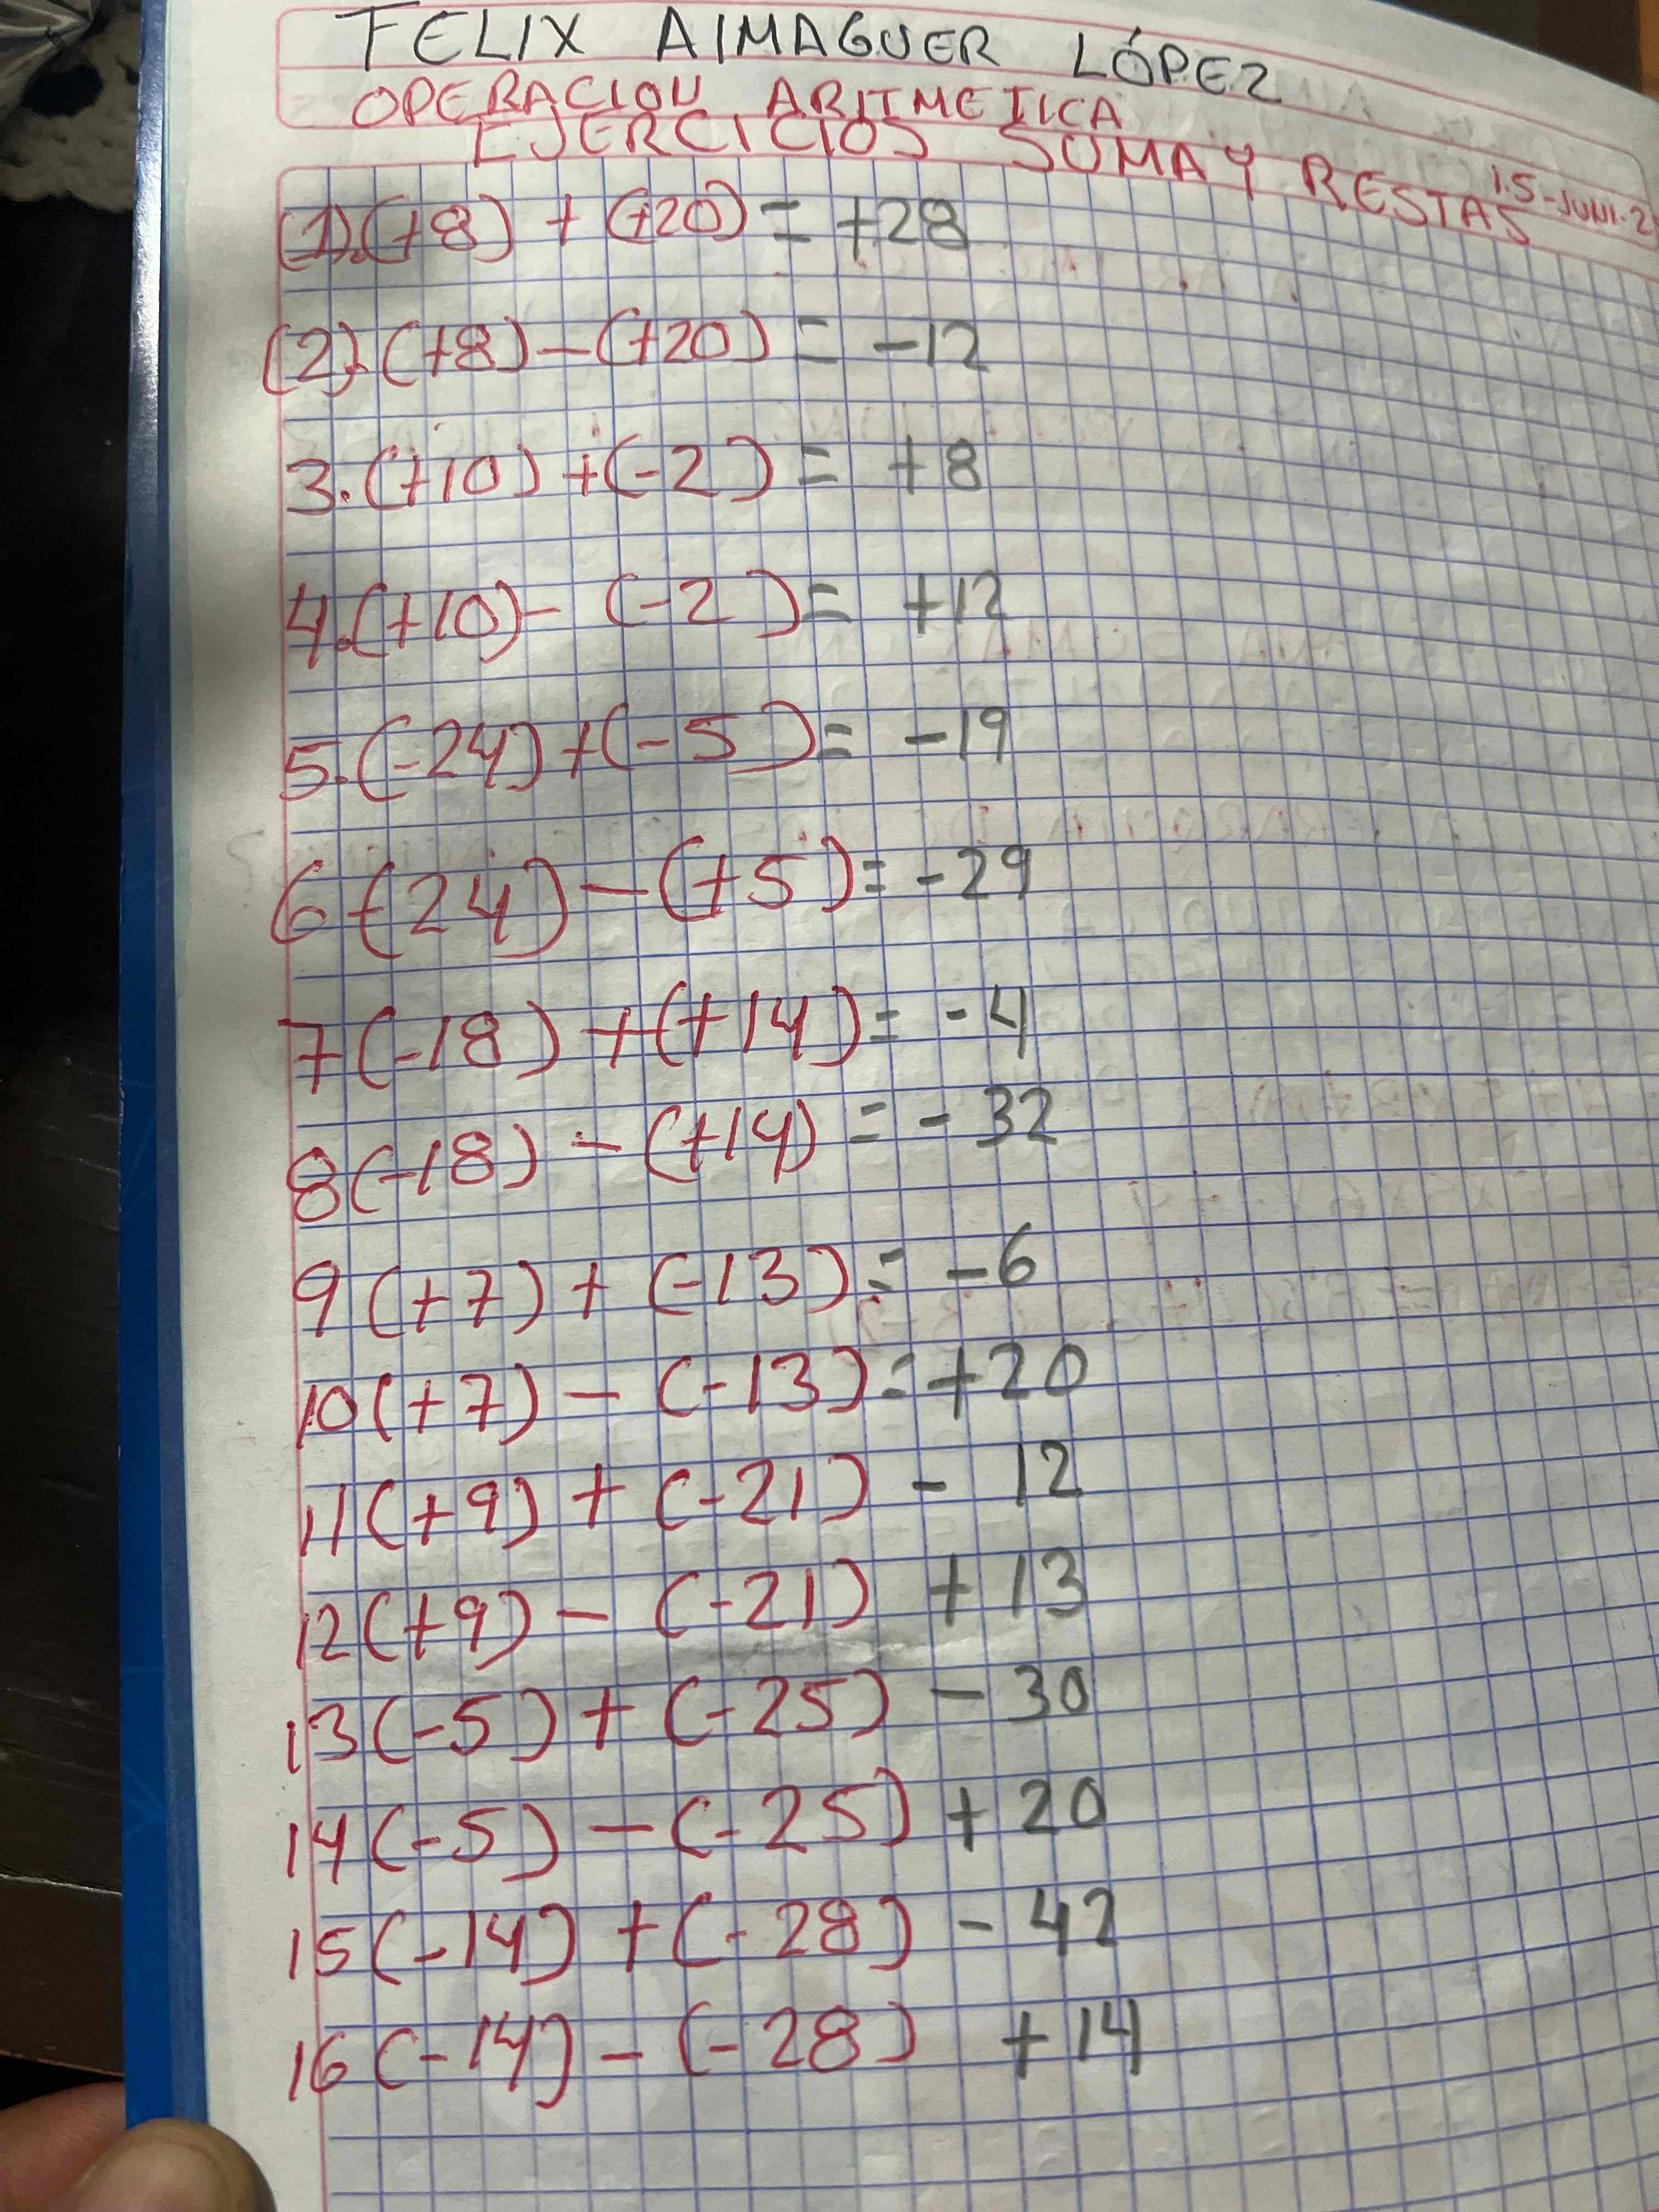 FELIX AIMAGUER LÓPEZ
OPERACION ARITMETICA
EJERCICIOS SUMA Y RESTAS
15-JUNI-2
(1).(+8) + (+20) = +28
(2).(+8) - (+20) = -12
3.(+10) + (-2) = +8
4.(+10) - (-2) = +12
5.(-24) + (-5) = -19
6 -(24) - (+5) = -29
7 (-18) + (+14) = -4
8 (-18) - (+14) = -32
9 (+7) + (-13) = -6
10 (+7) - (-13) = +20
11 (+9) + (-21) - 12
12 (+9) - (-21) + 13
13 (-5) + (-25) - 30
14 (-5) - (-25) + 20
15 (-14) + (-28) - 42
16 (-14) - (-28) + 14